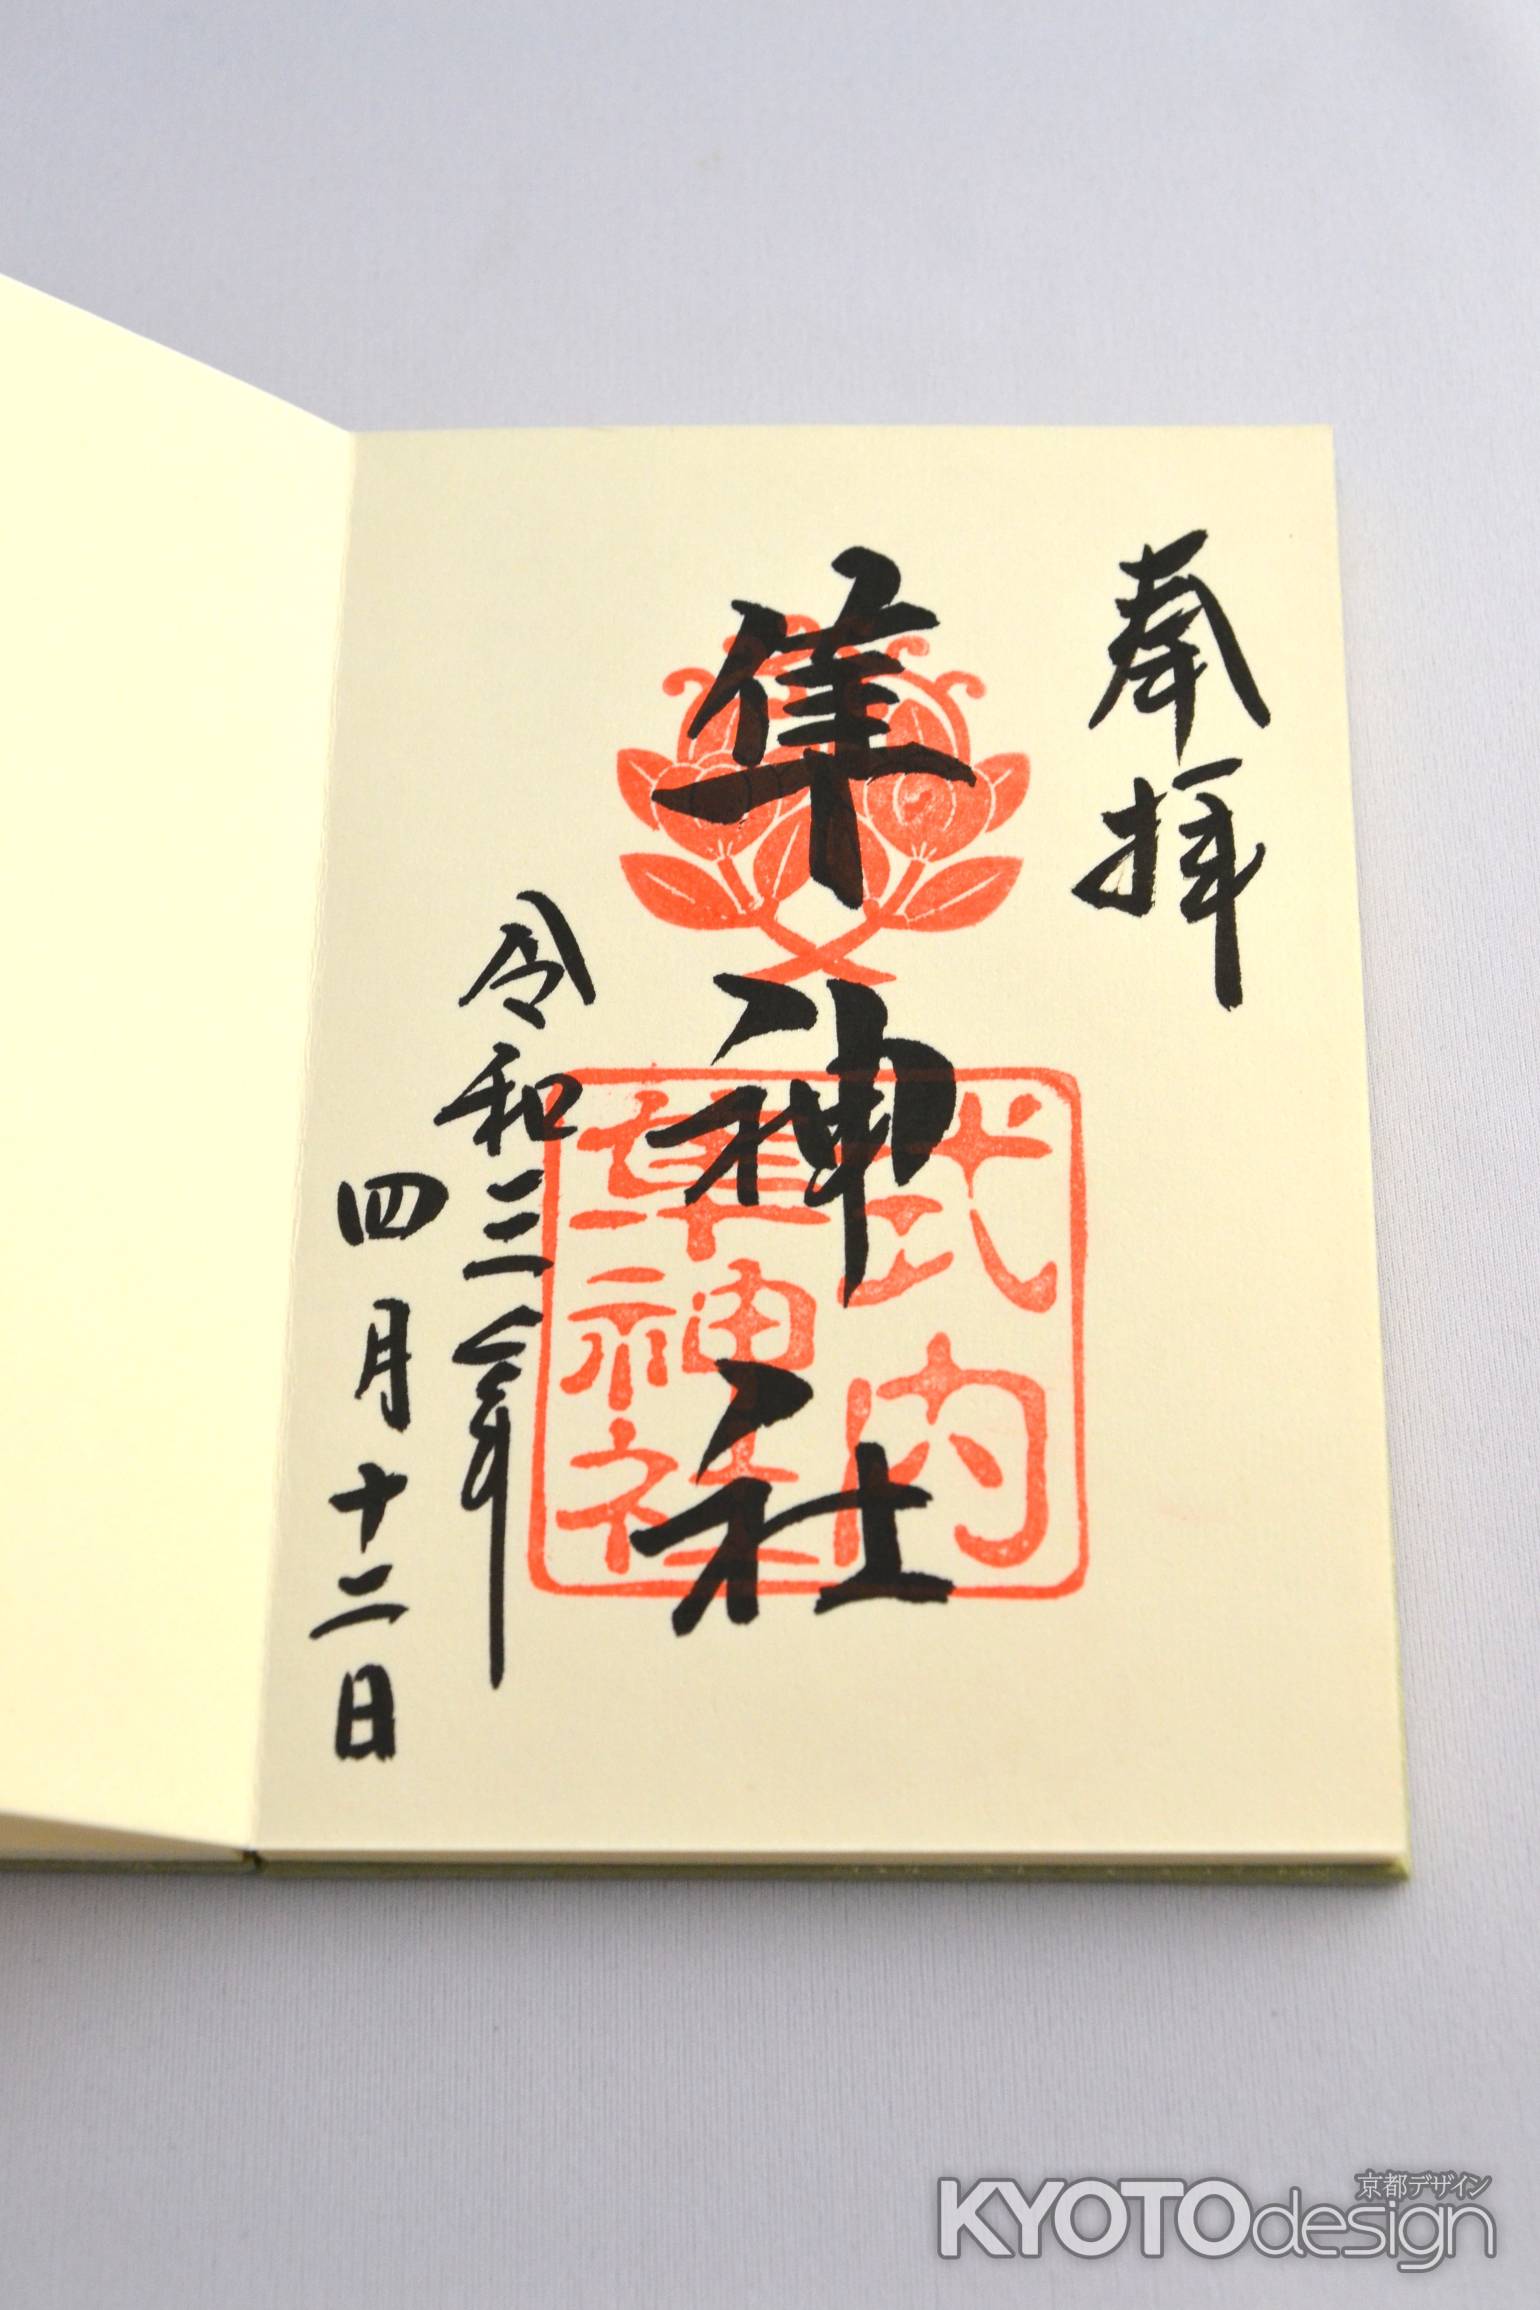 奉拝
隼神社
式内
隼神社
令和三年
四月十二日
京都デザイン
KYOTOdesign